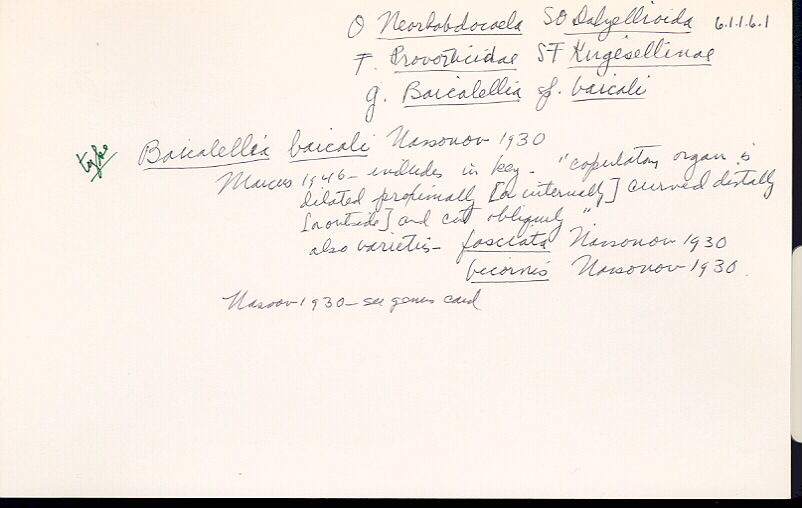 O Neorhabdocoela SO Dalyellioida 6.1.1.6.1
F. Provorticidae SF Kirgisellinae
g. Baicalellia sp. baicali
type
Baicalellia baicali Nassonov 1930
Marcus 1946 - includes in key - "copulatory organ is
dilated proximally [or internally] curved distally
[or outside] and cut obliquely"
also varieties - fasciata Nassonov 1930
bicornis Nassonov 1930.
Nassonov 1930 - see genus card